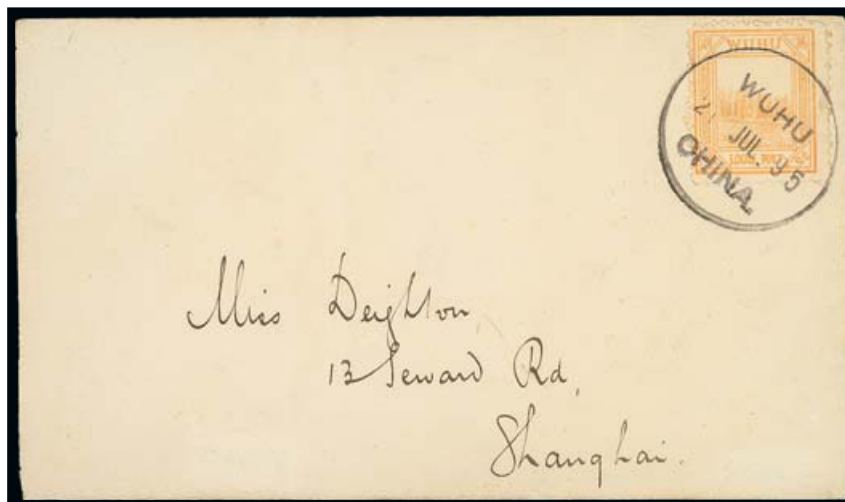 WUHU
WUHU
JUL. 95
CHINA.
LOCAL POST
Miss Deighton
13 Seward Rd.
Shanghai.